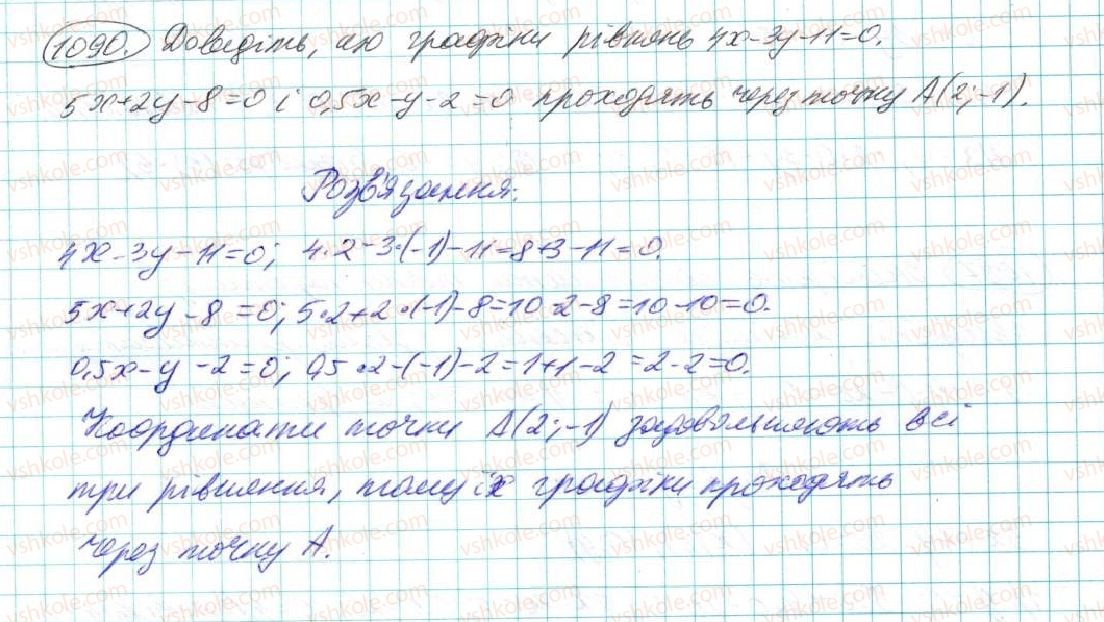 1090. Доведіть, що графіки рівнянь 4x-3y-11=0.
5x+2y-8=0 і 0,5x-y-2=0 проходять через точку A(2;-1).
Розв'язання:
4x-3y-11=0; 4·2-3·(-1)-11=8+3-11=0.
5x+2y-8=0; 5·2+2·(-1)-8=10-2-8=10-10=0.
0,5x-y-2=0; 0,5·2-(-1)-2=1+1-2=2-2=0.
Координати точки A(2;-1) задовольняють всі
три рівняння, тому їх графіки проходять
через точку A.
vshkole.com